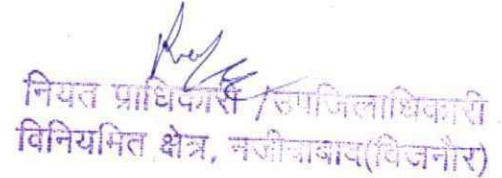 नियत प्राधिकारी /उपजिलाधिकारी
विनियमित क्षेत्र, नजीबाबाद(बिजनौर)